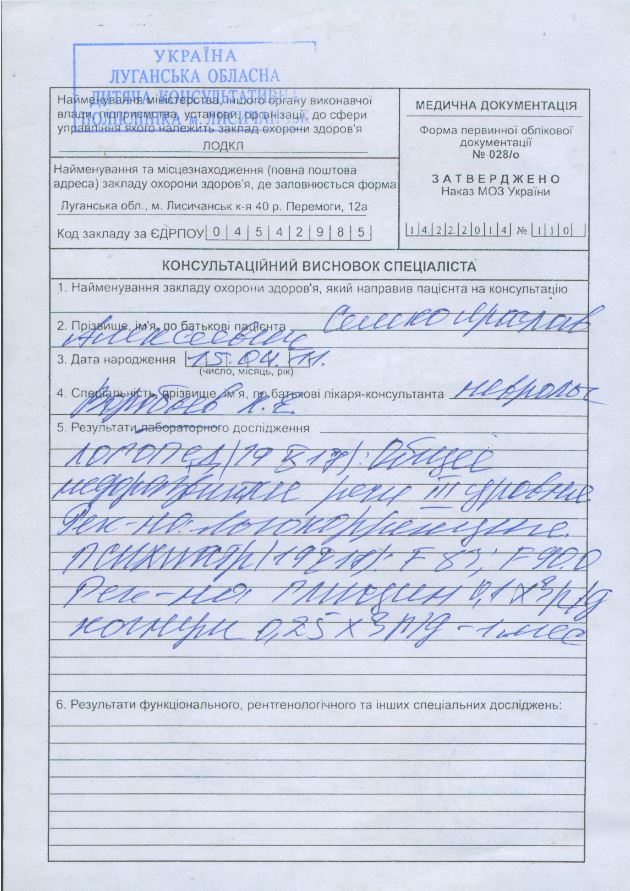 УКРАЇНА
ЛУГАНСЬКА ОБЛАСНА
ДИТЯЧА КОНСУЛЬТАТИВНА
ПОЛІКЛІНІКА м. ЛИСИЧАНСЬК
Найменування міністерства, іншого органу виконавчої
влади, підприємства, установи, організації, до сфери
управління якого належить заклад охорони здоров'я
ЛОДКЛ
Найменування та місцезнаходження (повна поштова
адреса) закладу охорони здоров'я, де заповнюється форма
Луганська обл., м. Лисичанськ к-я 40 р. Перемоги, 12а
Код закладу за ЄДРПОУ 0 4 5 4 2 9 8 5
МЕДИЧНА ДОКУМЕНТАЦІЯ
Форма первинної облікової
документації
№ 028/о
ЗАТВЕРДЖЕНО
Наказ МОЗ України
1 4 2 2 2 0 1 4 № 1 1 0
КОНСУЛЬТАЦІЙНИЙ ВИСНОВОК СПЕЦІАЛІСТА
1. Найменування закладу охорони здоров'я, який направив пацієнта на консультацію
2. Прізвище, ім'я, по батькові пацієнта Семко
Алексеевич
3. Дата народження 15.04.11.
(число, місяць, рік)
4. Спеціальність, прізвище, ім'я, по батькові лікаря-консультанта невролог
К.Е.
5. Результати лабораторного дослідження
логопед (19 17): Общее
недоразвитие речи III уровня
Рек-на: логокоррекция.
психиатр (19 17): F 83; F 90.0
Рек-на глицин 0,1 х 3 р/д
когнум 0,25 х 3 р/д - 1 мес
6. Результати функціонального, рентгенологічного та інших спеціальних досліджень: